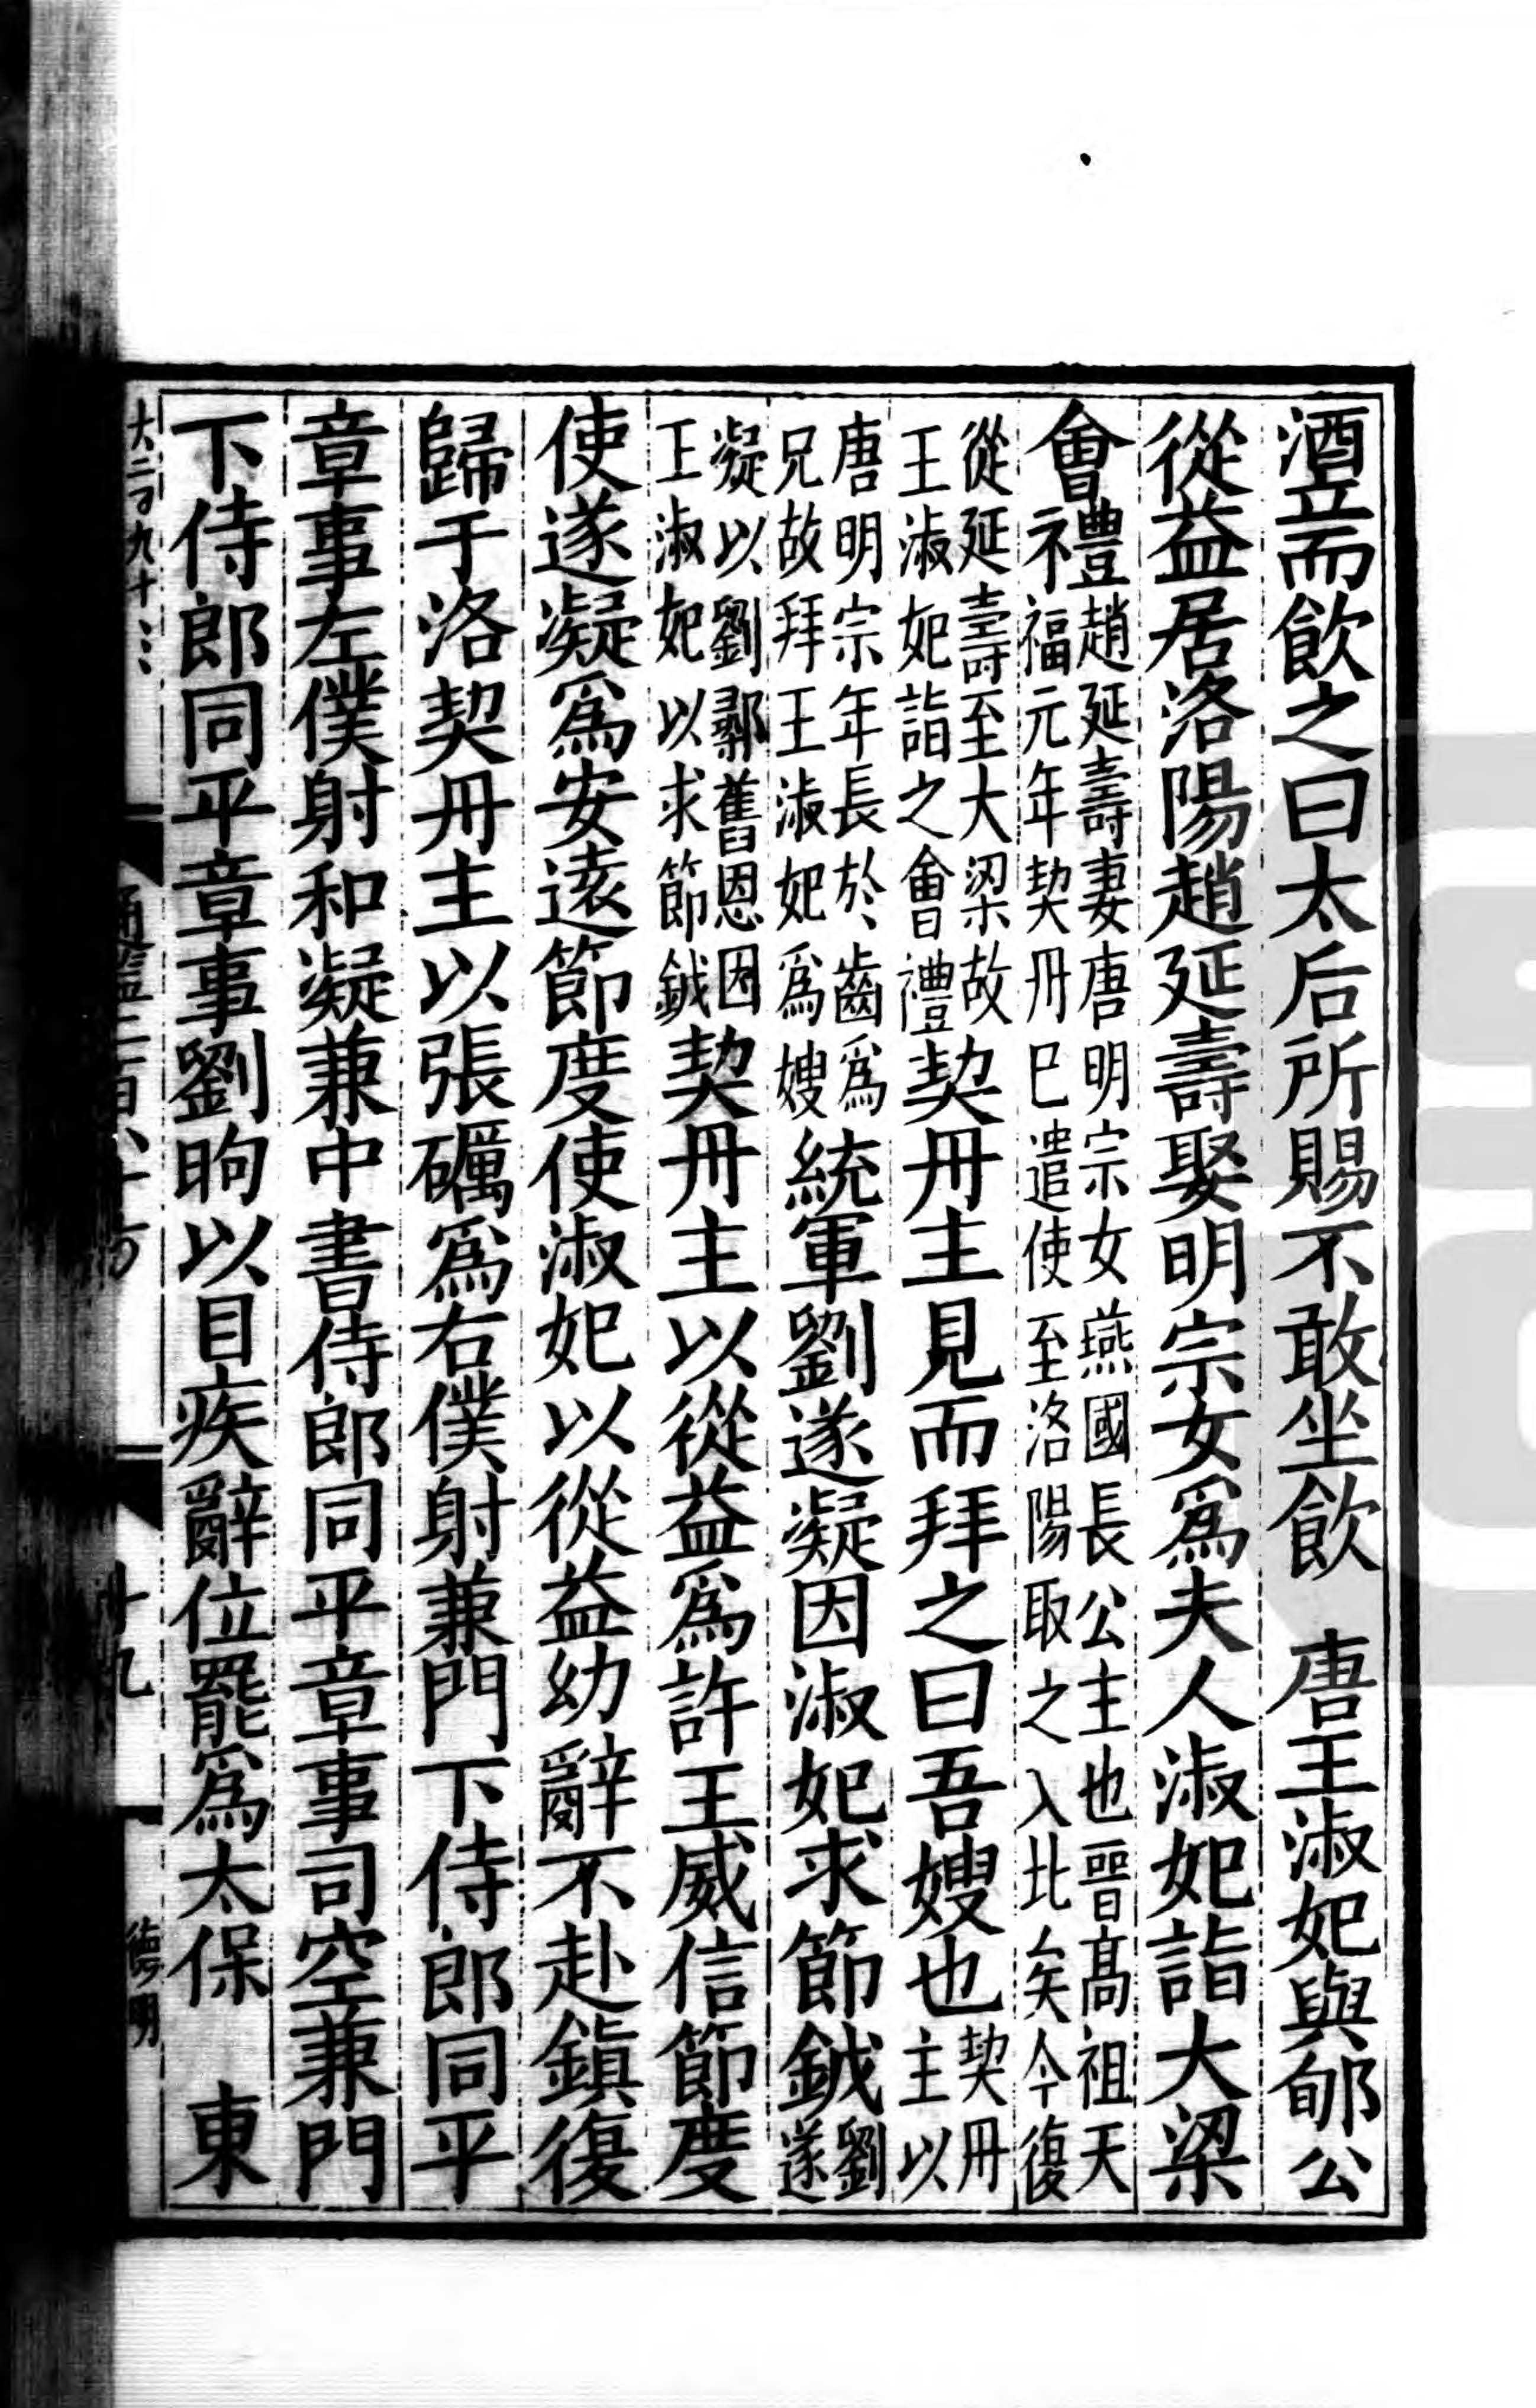 酒立而飲之曰太后所賜不敢坐飲　唐王淑妃與郇公
從益居洛陽趙延壽娶明宗女為夫人淑妃詣大梁
會禮趙延壽妻唐明宗女燕國長公主也晉髙祖天
福元年契丹巳遣使至洛陽取之入北矣今復
從延壽至大梁故
王淑妃詣之會禮契丹主見而拜之曰吾嫂也契丹
主以
唐明宗年長於齒爲
兄故拜王淑妃爲嫂統軍劉遂凝因淑妃求節鉞劉
遂
凝以劉鄩舊恩因
王淑妃以求節鉞契丹主以從益爲許王威信節度
使遂凝爲安遠節度使淑妃以從益幼辭不赴鎮復
歸于洛契丹主以張礪爲右僕射兼門下侍郎同平
章事左僕射和凝兼中書侍郎同平章事司空兼門
下侍郎同平章事劉昫以目疾辭位罷爲太保　東